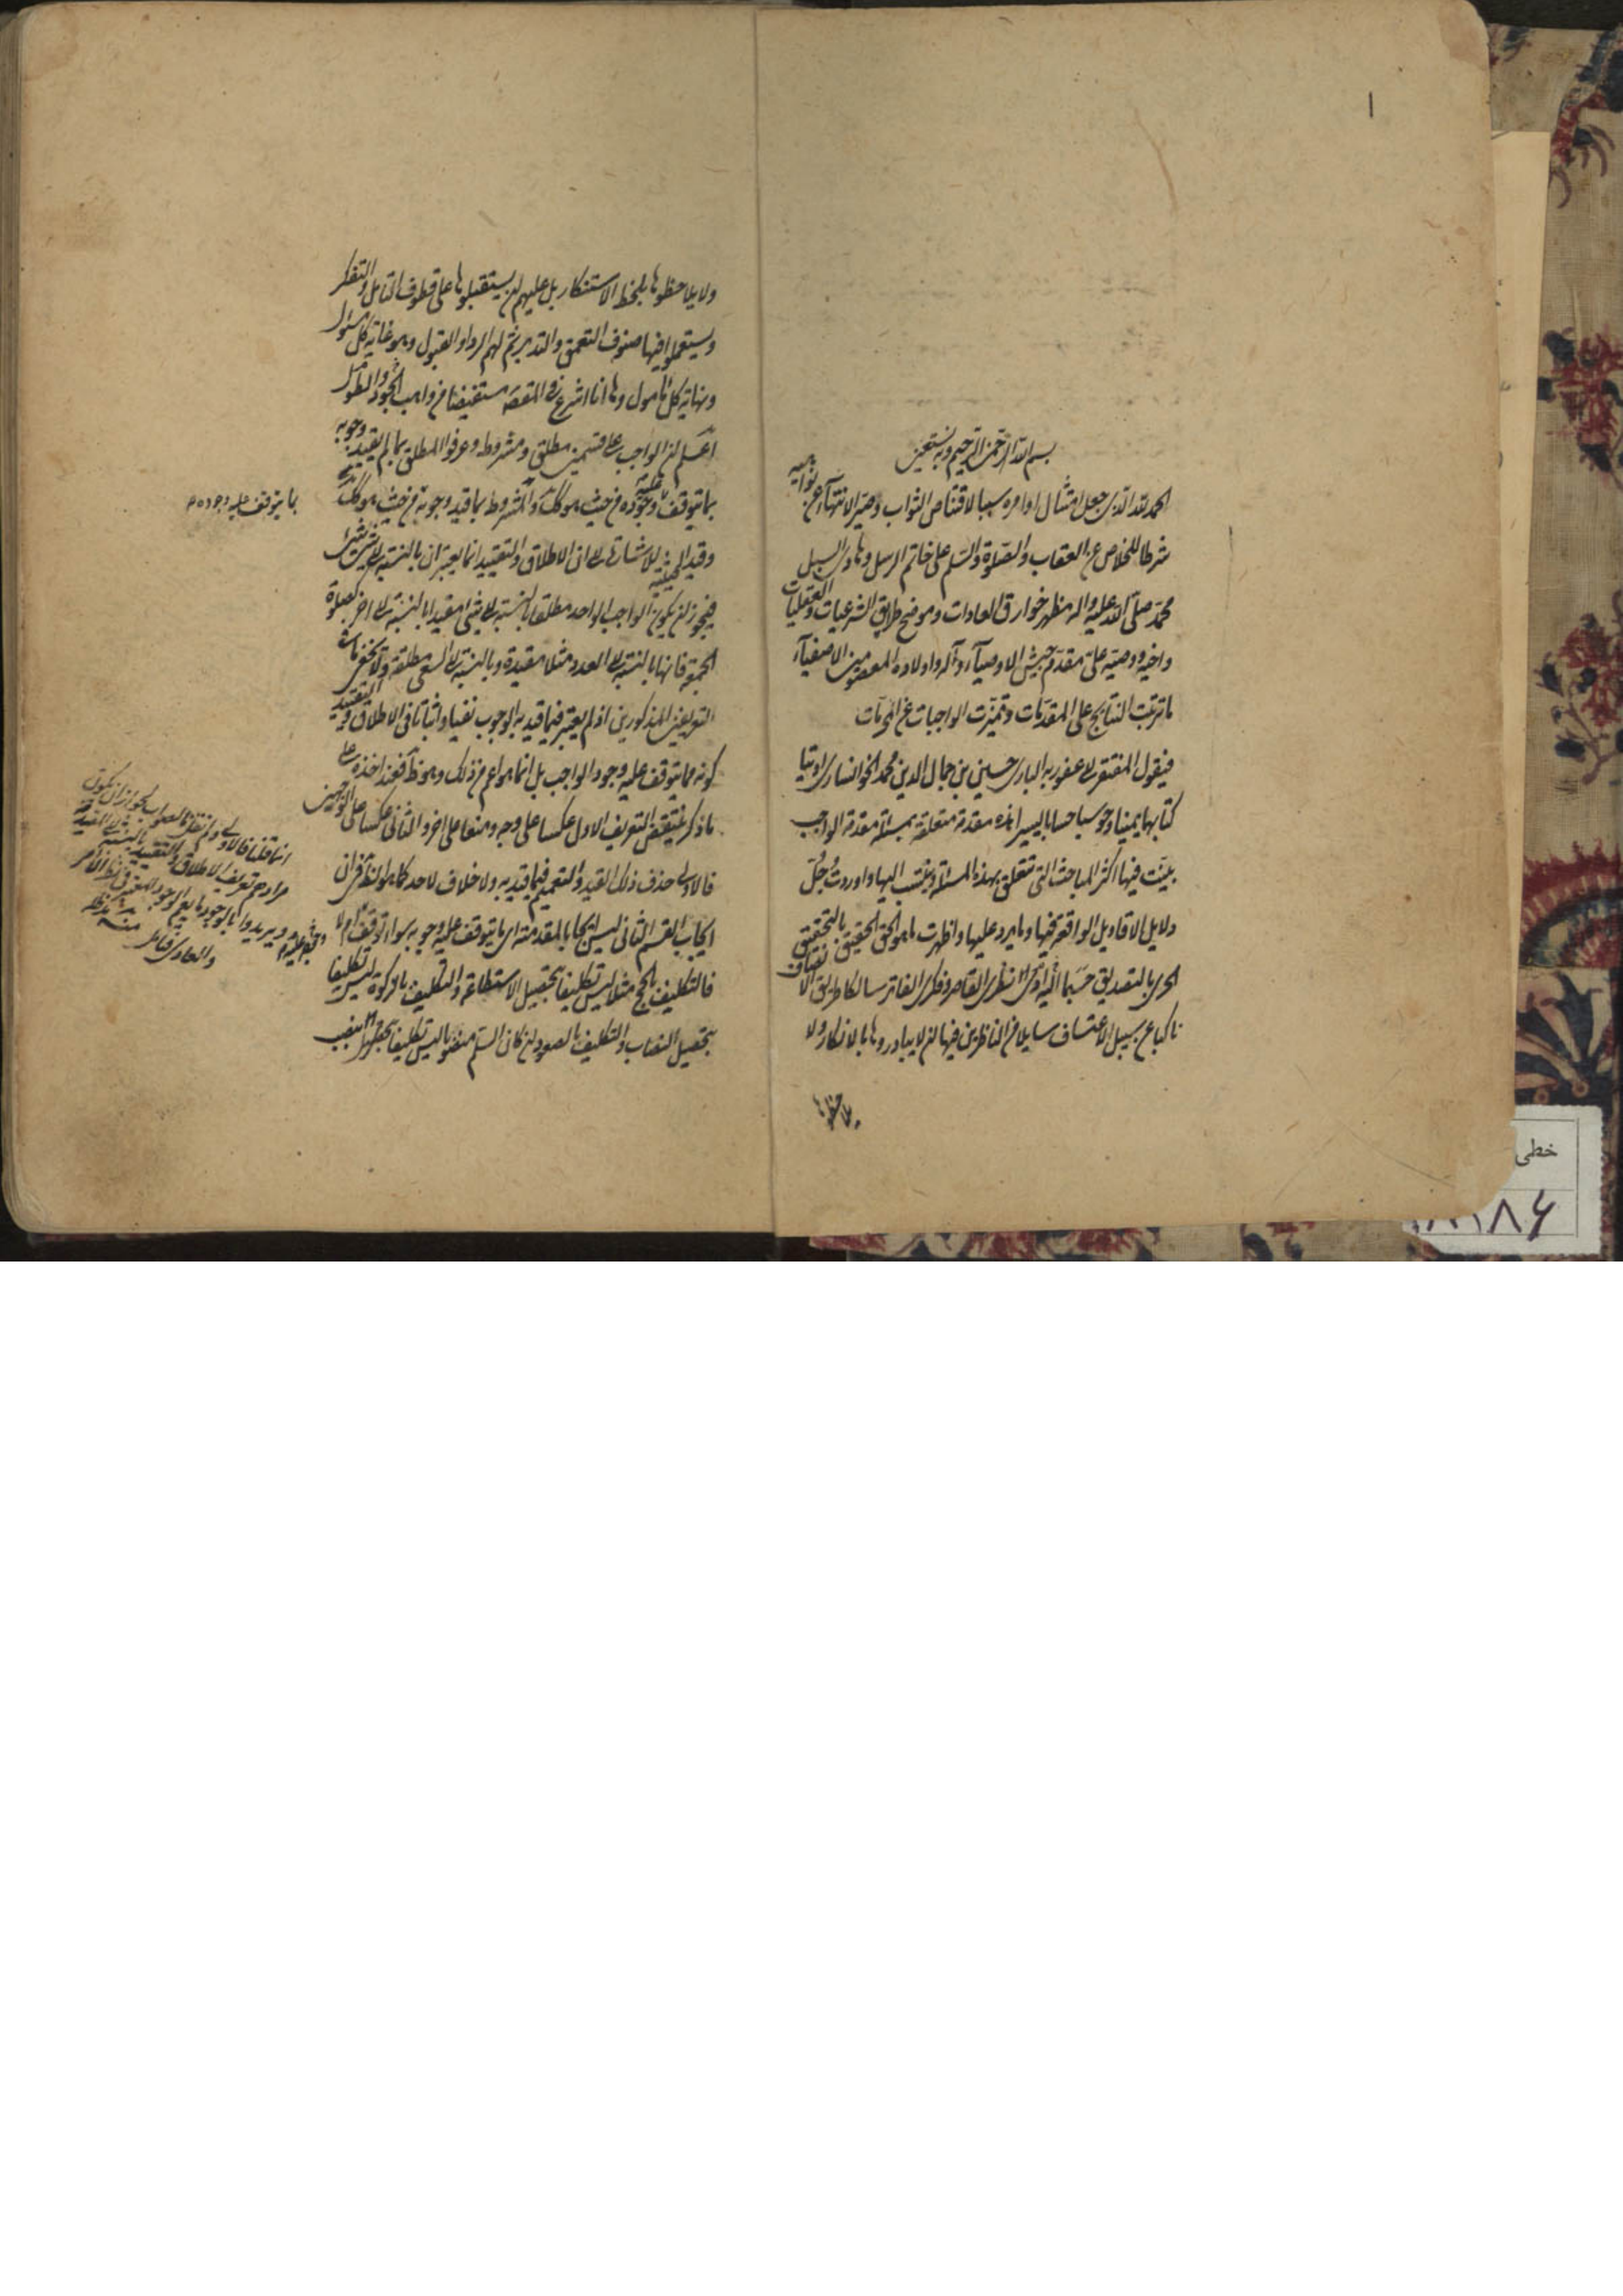 ١
بسم الله الرحمن الرحيم وبه نستعين
الحمد لله الذى جعل امتثال اوامره سببا لاقتناص الثواب وصير الانتهاء عن نواهيه
شرطا للخلاص عن العقاب والصلوة والسلم على خاتم الرسل وهادى السبل
محمد صلى الله عليه واله مظهر خوارق العادات وموضح طرايق الشرعيات والعقليات
واخيه ووصيه على مقدم جيش الاوصياء وآله واولاده المعصومين الاصفياء
ما ترتبت النتايج على المقدمات وتميزت الواجبات عن المحرمات
فيقول المفتقر الى عفو ربه البارى حسين بن جمال الدين محمد الخوانسارى اوتيا
كتابهما يمينا وحوسبا حسابا يسيرا هذه مقدمة متعلقة بمسئلة مقدمة الواجب
بينت فيها اكثر المباحث التى تتعلق بهذه المسئلة وينتسب اليها واوردت جل
دلايل الاقاويل الواقعة فيها وما يرد عليها واظهرت ما هو الحق الحقيق بالتحقيق
الحرى بالتصديق حسبما ادى اليه نظرى القاصر وفكرى الفاتر سالكا طريق الانصاف
ناكبا عن سبيل الاعتساف سايلا من الناظرين فيها ان لا يبادروها بالانكار ولا
يلاحظوها
ولا يلاحظوها بلحظ الاستنكار بل عليهم ان يستقبلوها على قطوف التامل والتفكر
ويستعملوا فيها صنوف التعمق والتدبر ثم لهم الرد او القبول وهو غاية كل مسئول
ونهاية كل مامول وها انا اشرع فى المقصد مستفيضا من واهب الجود والطول
اعلم ان الواجب على قسمين مطلق ومشروط وعرفوا المطلق بما لم يقيد وجوبه
بما يتوقف عليه وجوده من حيث هو كذلك والمشروط بما قيد وجوبه من حيث هو كذلك
بما يتوقف عليه وجوده
وقيد الحيثية للاشارة الى ان الاطلاق والتقييد انما يعتبران بالنسبة الى شىء شىء
فيجوز ان يكون الواجب الواحد مطلقا بالنسبة الى شىء مقيدا بالنسبة الى اخر كصلوة
الجمعة فانها بالنسبة الى العدد مثلا مقيدة وبالنسبة الى السعى مطلقة ولا يخفى ما فى
التعريفين المذكورين اذ لم يعتبر فيما قيد به الوجوب نفيا واثباتا فى الاطلاق والتقييد
كونه مما يتوقف عليه وجود الواجب بل انما هو اعم من ذلك وهو ظ فعند اخذه على
ما ذكر ينتقض التعريف الاول عكسا على وجه ومنعا على اخر والثانى عكسا على الوجهين
فالاولى حذف ذلك القيد والتعميم فيما قيد به ولا خلاف لاحد كما هو الظ فى ان
ايجاب القسم الثانى ليس ايجابا لمقدمته اى ما يتوقف عليه وجوبه سواء توقف
فالتكليف بالحج مثلا ليس تكليفا بتحصيل الاستطاعة والتكليف بالزكوة ليس تكليفا
بتحصيل النصاب والتكليف بالصعود ان كان السلم منصوبا ليس تكليفا بنصب
انما قلنا فالاولى ولم نقل فالصواب لجواز ان يكون
مرادهم تعريف الاطلاق والتقييد بالنسبة الى المقدمة